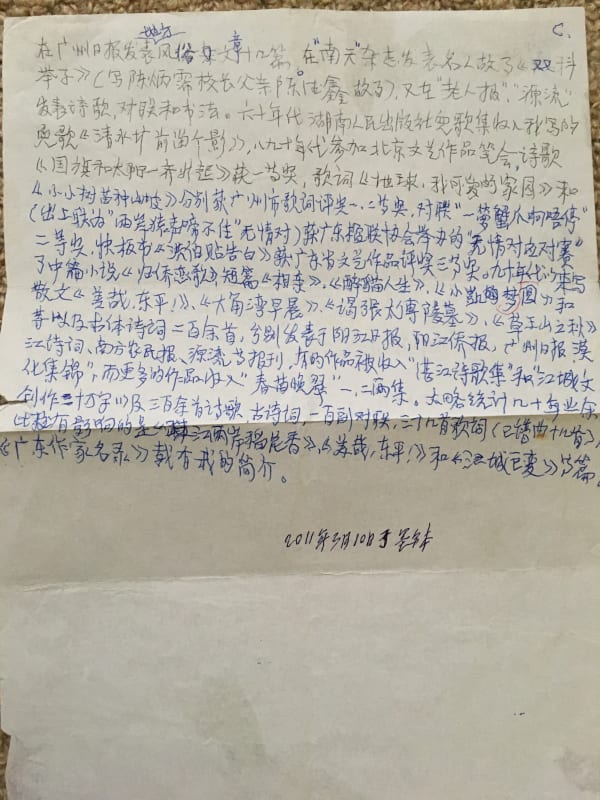 C.
地方
在广州日报发表风俗文章十几篇。在"南天"杂志发表名人故了《双科
举子》(写陈炳霖校长父亲陈 鑫故了),又在"老人报"、"源流"
发表诗歌,对联和书法。六十年代湖南人民出版社 歌集收入我写的
歌《清水圹前留个影》,八九十年代参加北京文艺作品笔会,诗歌
《国旗和太阳一齐升起》获一等奖,歌词《地球,我可爱的家园》和
《小小树苗种山坡》分别获广州市歌词评奖一、二等奖,对联"一 蟹爪 唔停"
(出上联为"两岸猿声啼不住"无情对)获广东楹联协会举办的"无情对应对赛"
二等奖,快板书《 伯贴告白》获广东省文艺作品评奖三等奖。九十年代以来写
了中篇小说《归侨恋歌》、短篇《相亲》、《酸酯人生》、《小 梦圆》和
散文《美哉,东平!》、《大角湾早晨》、《谒张太傅陵墓》、《 山之秋》
等以及古体诗词二百余首,分别发表于阳江日报、阳江侨报、广州日报、漠
江诗词、南方农民报、源流等报刊,有的作品被收入"湛江诗歌集"和"江城文
化集锦",而更多的作品收入"春苗晚翠"一、二两集。大略统计几十年业余
创作三十万字以及三百余首诗歌、古诗词,一百副对联,三十几首歌词(已谱曲十几首),
比较有影响的是《 江两岸稻花香》、《美哉,东平!》和《江城巨变》等篇。
《广东作家名录》载有我的简介。
2011年3月10日于